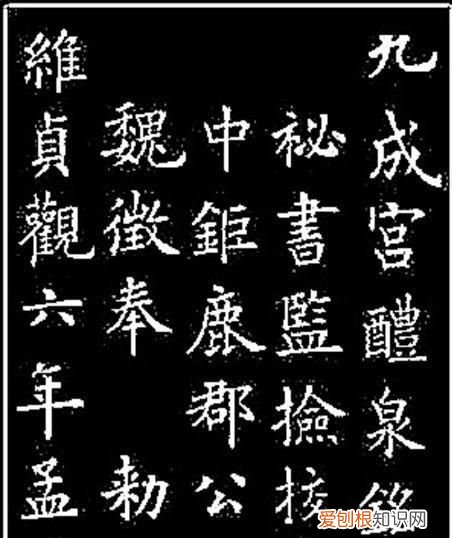 九成宫醴泉銘
祕書監撿挍
中鉅鹿郡公
魏徵奉 勅
維貞觀六年孟
爱刨根知识网